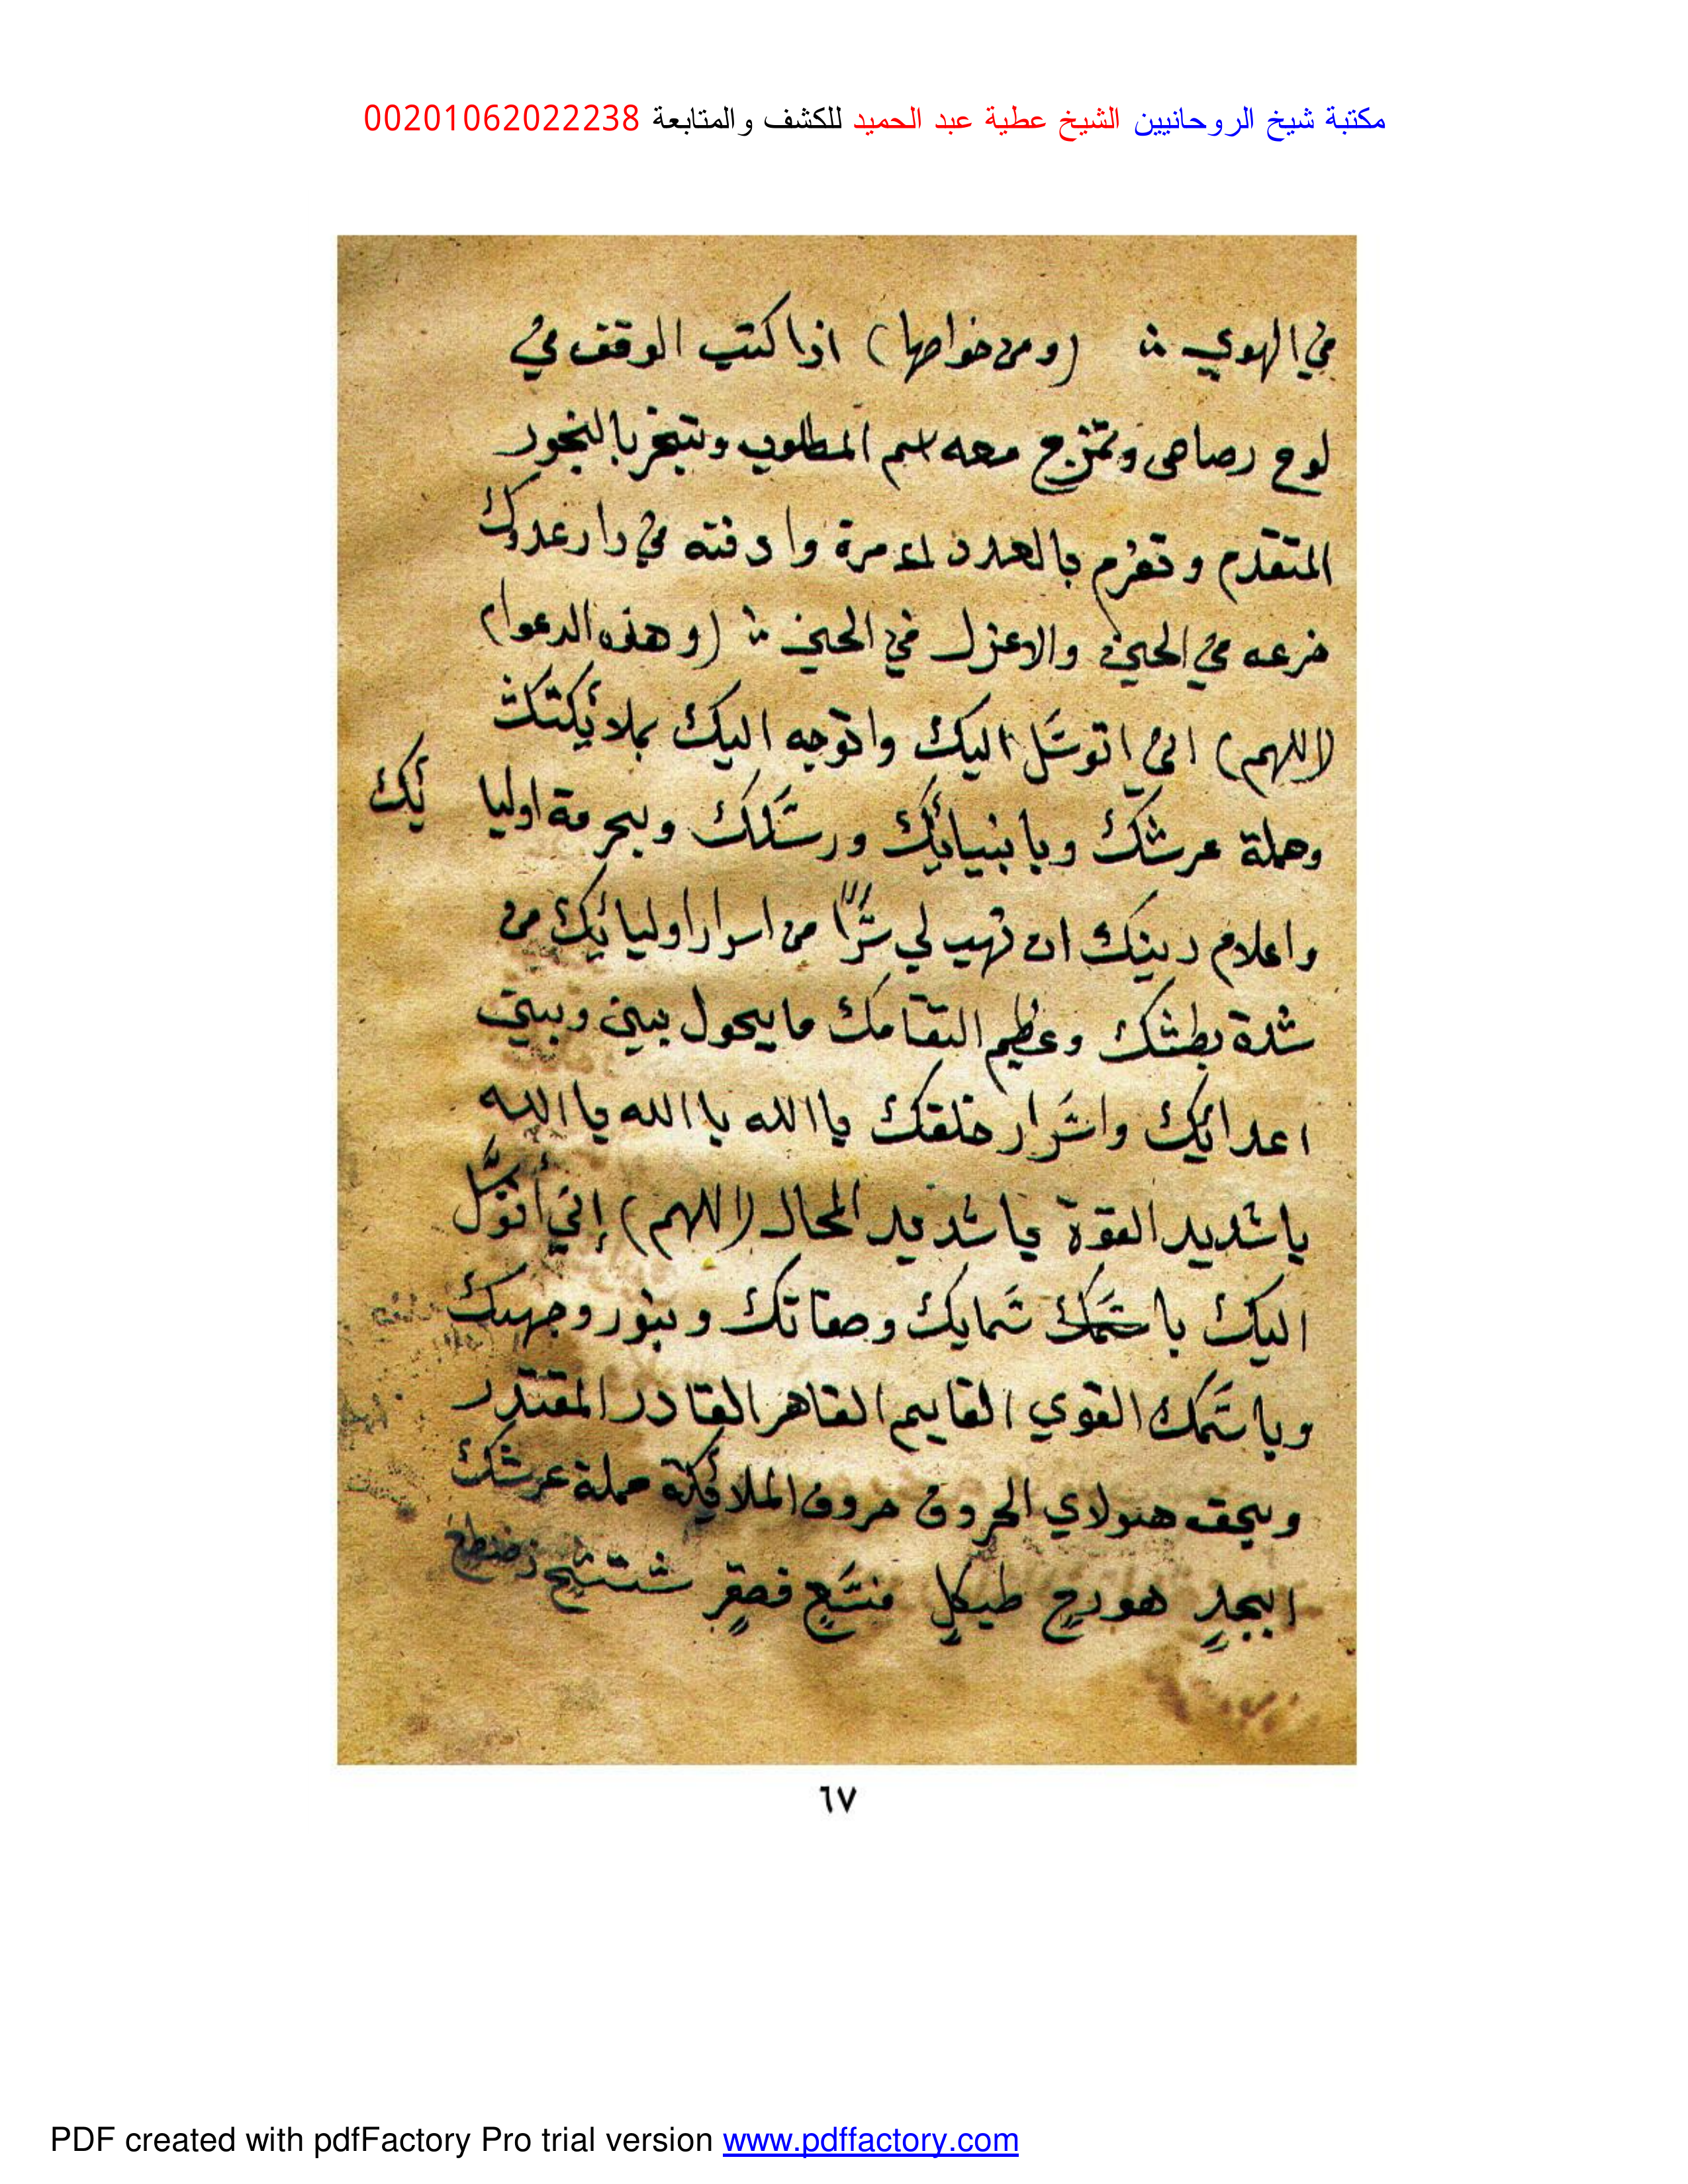 مكتبة شيخ الروحانيين الشيخ عطية عبد الحميد للكشف والمتابعة 00201062022238
في الهوي ث (ومن خواصها) اذا كتب الوقف في
لوح رصاص وتمزج معه اسم المطلوب وتبخر بالبخور
المتقدم و تعزم بالعدد مرة وادفنه في دار عدوك
في الحين والاعزل في الحين ث (وهذه الدعوا)
(اللهم) اني اتوسَّل اليك واتوجه اليك بملائكتك
وحملة عرشك وبانبيائك ورسَلك وبحرمة اوليا ئك
واعلام دينك ان تهب لي سرًّا من اسرار اوليائك من
شدة بطشك وعظيم انتقامك ما يحول بيني وبين
اعدائك واشَرار خلقك يا الله يا الله يا الله
يا شديد القوة يا شديد المحال (اللهم) إني أتوسَّل
اليك با سَمايك وصفاتك وبنور وجهك
وباسَمك القوي القايم القاهر القادر المقتدِر
وبحق هولاي الحروف حروف الملائكة حملة عرشك
ابجدٍ هوزحٍ طيكلٍ منسَعٍ فصقرٍ شتثخ ذضظغ
٦٧
PDF created with pdfFactory Pro trial version www.pdffactory.com